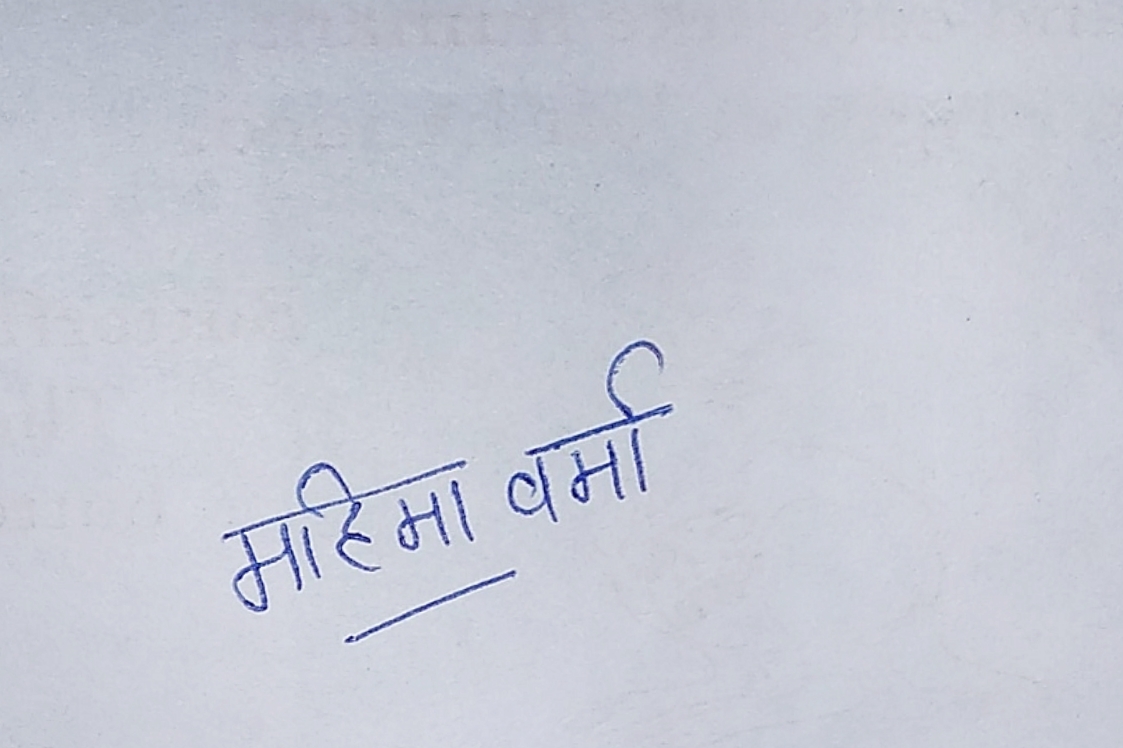 महिमा वर्मा